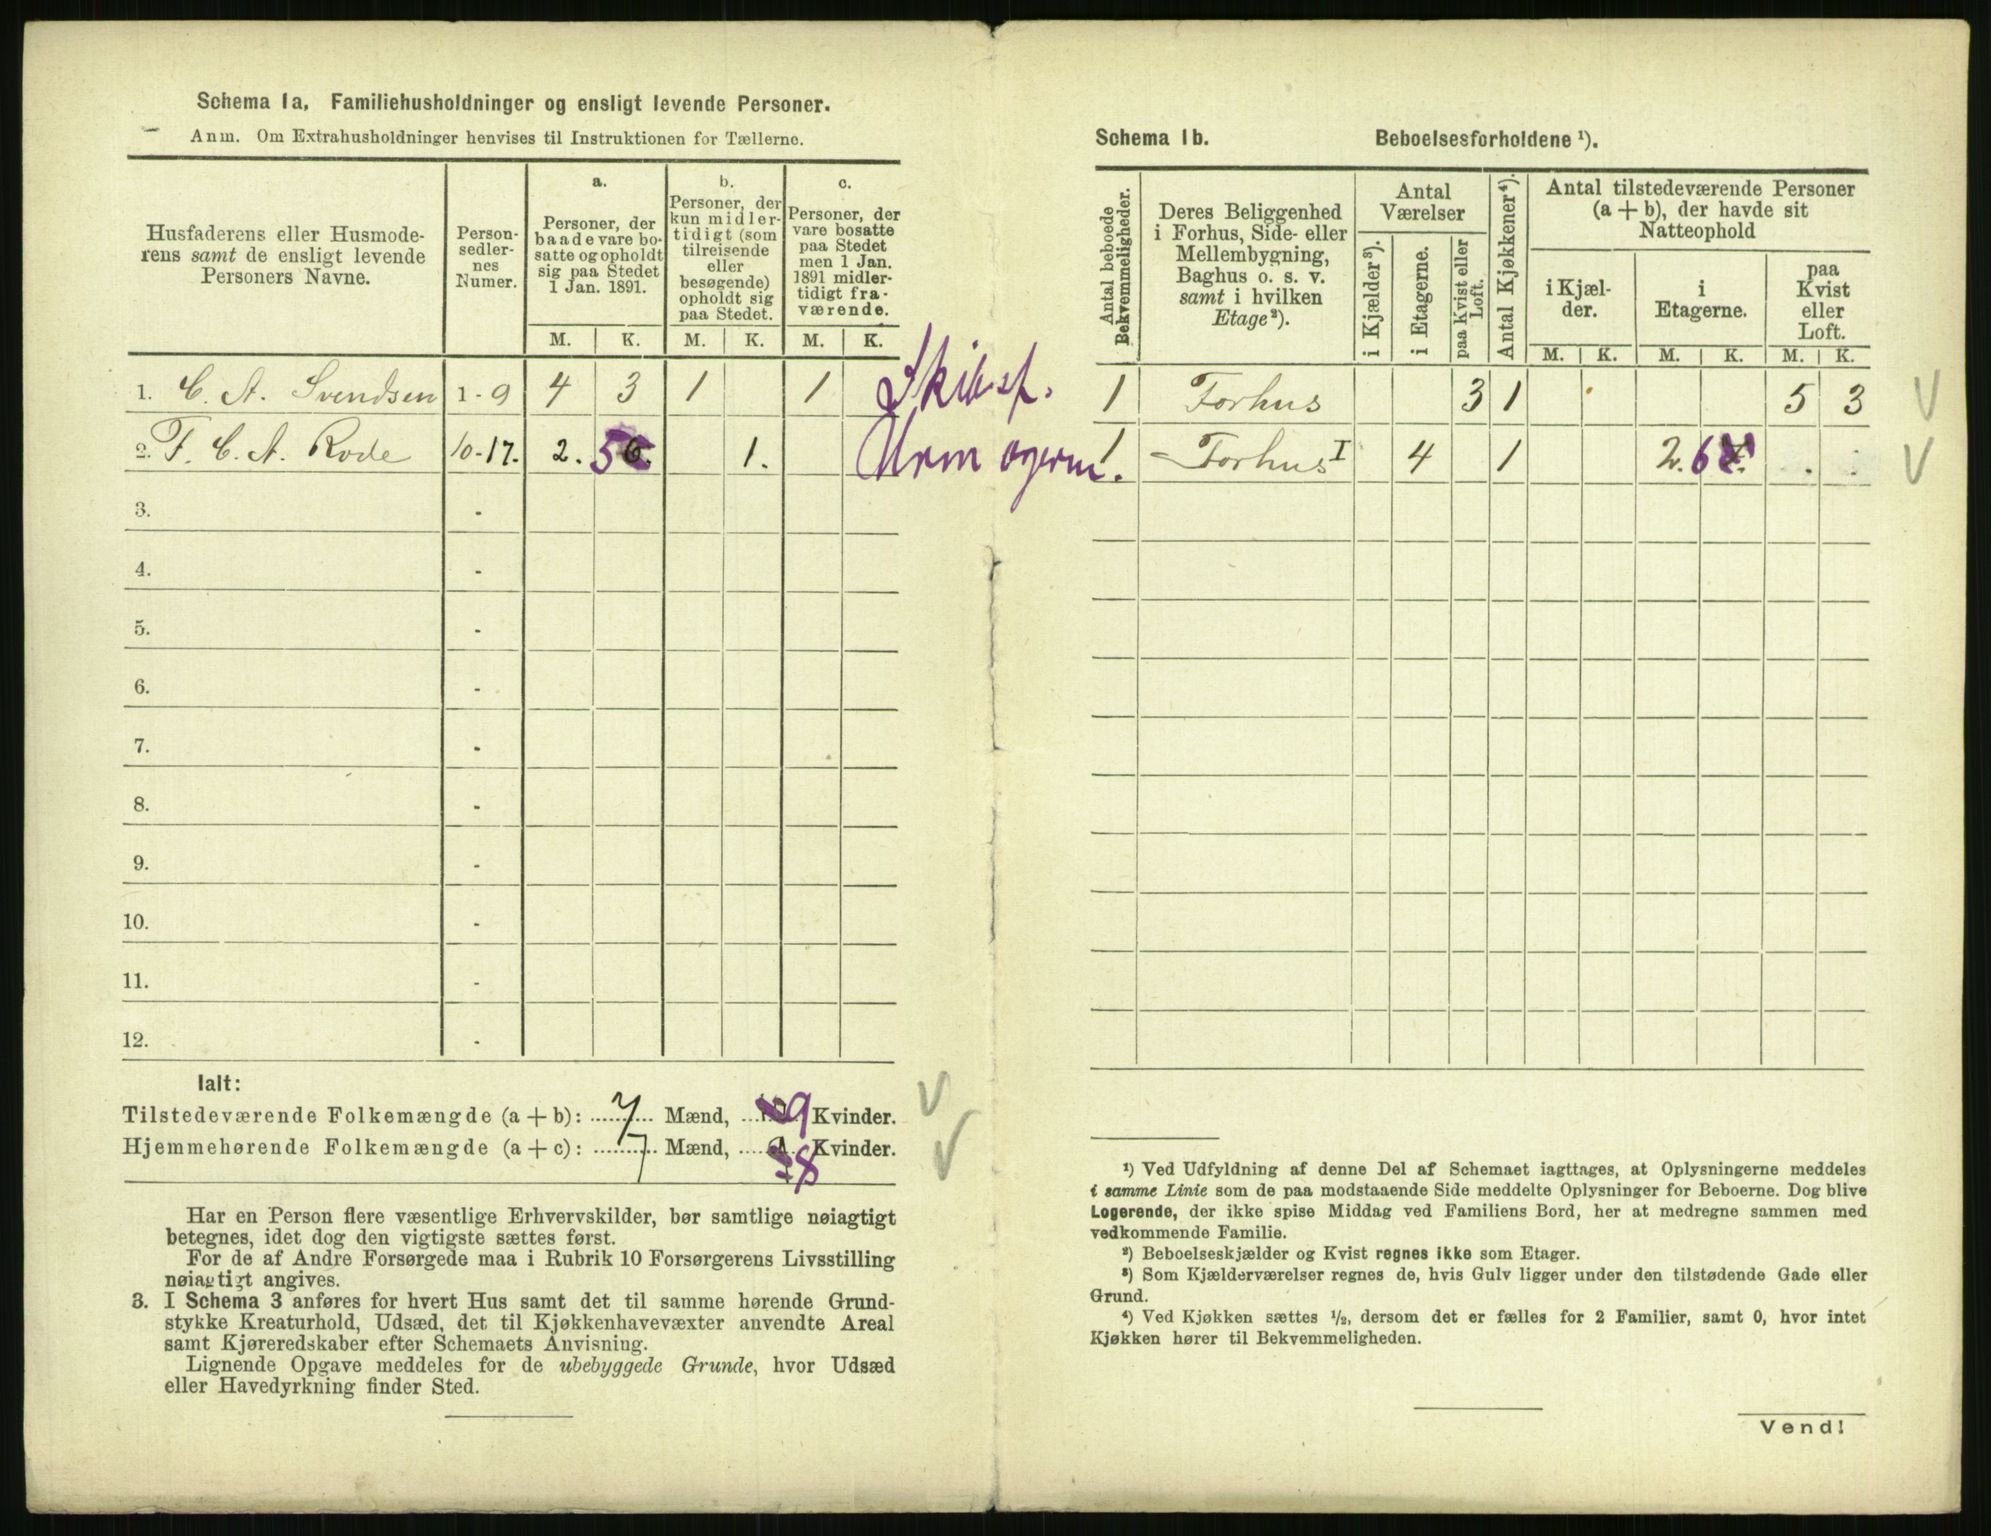 Schema 1a. Familiehusholdninger og ensligt levende Personer.
Anm. Om Extrahusholdninger henvises til Instruktionen for Tællerne.
Husfaderens eller Husmoderens samt de ensligt levende Personers Navne.
Personsedlernes Numer.
a. Personer, der baade vare bosatte og opholdt sig paa Stedet 1 Jan. 1891.
b. Personer, der kun midlertidigt (som tilreisende eller besøgende) opholdt sig paa Stedet.
c. Personer, der vare bosatte paa Stedet men 1 Jan. 1891 midlertidigt fraværende.
M. K. M. K. M. K.
1. C. A. Svendsen 1-9 4 3 1 1 Skibsf.
2. F. C. A. Rode 10-17. 2. 5 1.
3. -
4. -
5. -
6. -
7. -
8. -
9. -
10. -
11. -
12. -
Ialt:
Tilstedeværende Folkemængde (a + b): 7 Mænd, 9 Kvinder.
Hjemmehørende Folkemængde (a + c): 7 Mænd, 8 Kvinder.
Har en Person flere væsentlige Erhvervskilder, bør samtlige nøiagtigt
betegnes, idet dog den vigtigste sættes først.
For de af Andre Forsørgede maa i Rubrik 10 Forsørgerens Livsstilling
nøiagtigt angives.
3. I Schema 3 anføres for hvert Hus samt det til samme hørende Grund-
stykke Kreaturhold, Udsæd, det til Kjøkkenhavevæxter anvendte Areal
samt Kjøreredskaber efter Schemaets Anvisning.
Lignende Opgave meddeles for de ubebyggede Grunde, hvor Udsæd
eller Havedyrkning finder Sted.
Schema 1b. Beboelsesforholdene ¹).
Antal beboede Bekvemmeligheder.
Deres Beliggenhed i Forhus, Side- eller Mellembygning, Baghus o. s. v. samt i hvilken Etage²).
Antal Værelser
i Kjælder³).
i Etagerne.
paa Kvist eller Loft.
Antal Kjøkkener⁴).
Antal tilstedeværende Personer (a + b), der havde sit Natteophold
i Kjælder.
i Etagerne.
paa Kvist eller Loft.
M. K. M. K. M. K.
1 Forhus 3 1 5 3
1 Forhus I 4 1 2. 6
¹) Ved Udfyldning af denne Del af Schemaet iagttages, at Oplysningerne meddeles
i samme Linie som de paa modstaaende Side meddelte Oplysninger for Beboerne. Dog blive
Logerende, der ikke spise Middag ved Familiens Bord, her at medregne sammen med
vedkommende Familie.
²) Beboelseskjælder og Kvist regnes ikke som Etager.
³) Som Kjælderværelser regnes de, hvis Gulv ligger under den tilstødende Gade eller
Grund.
⁴) Ved Kjøkken sættes ½, dersom det er fælles for 2 Familier, samt 0, hvor intet
Kjøkken hører til Bekvemmeligheden.
Vend!